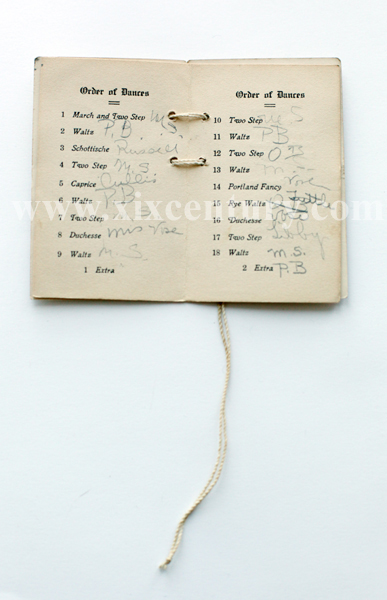 Order of Dances
1 March and Two Step M.S.
2 Waltz P.B. M.S.
3 Schottische Russell
4 Two Step M.S.
5 Caprice
6 Waltz P.B.
7 Two Step
8 Duchesse Mrs
9 Waltz M.S.
1 Extra
Order of Dances
10 Two Step M S
11 Waltz P B
12 Two Step O
13 Waltz
14 Portland Fancy
15 Rye Waltz
16 Duchesse
17 Two Step
18 Waltz M.S.
2 Extra P.B
www.xixcentury.com